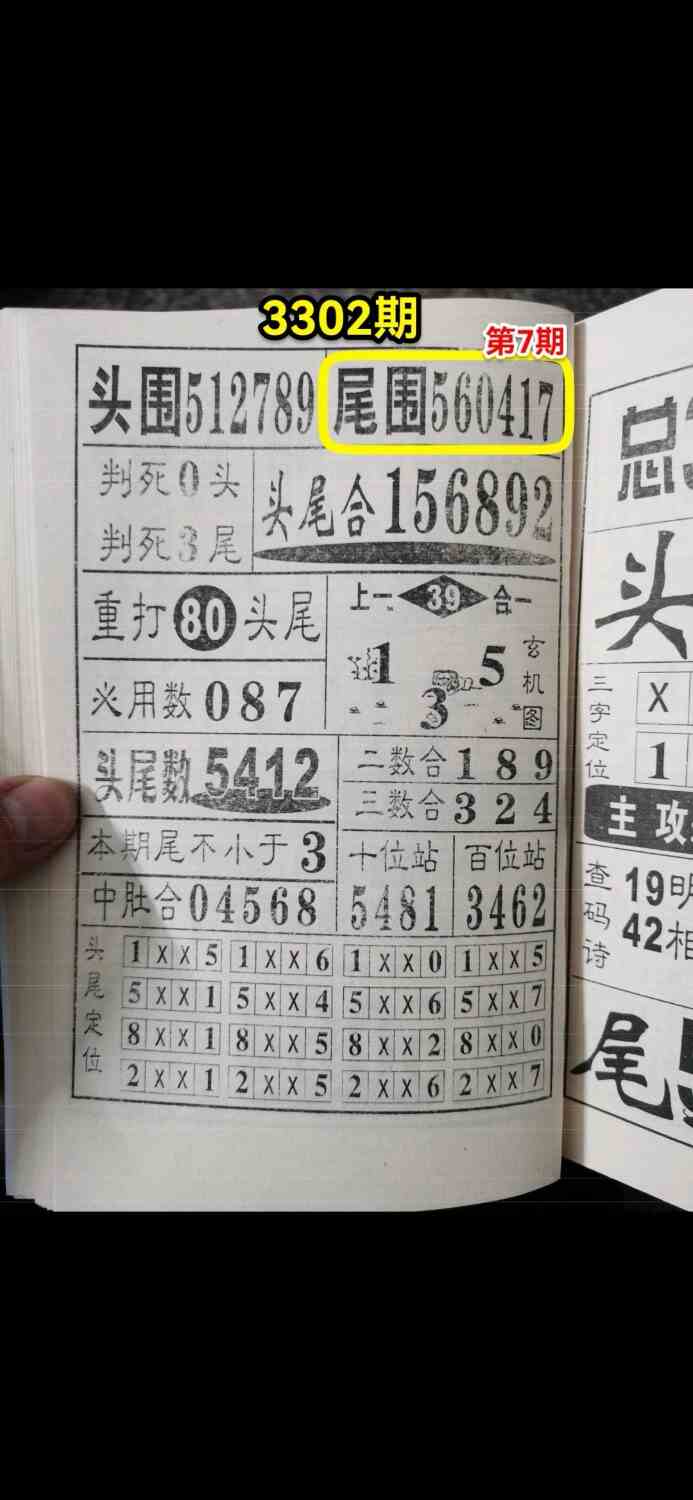 3302期
第7期
头围512789 尾围560417
判死0头
判死3尾
头尾合156892
重打80头尾
必用数087
上一 39 合一
1 5
3
玄机图
头尾数5412
二数合189
三数合324
本期尾不小于3
中肚合04568
十位站 百位站
5481 3462
头尾定位
1XX5 1XX6 1XX0 1XX5
5XX1 5XX4 5XX6 5XX7
8XX1 8XX5 8XX2 8XX0
2XX1 2XX5 2XX6 2XX7
总
头
三字定位
X
1
主攻
查码诗
19明
42相
尾5